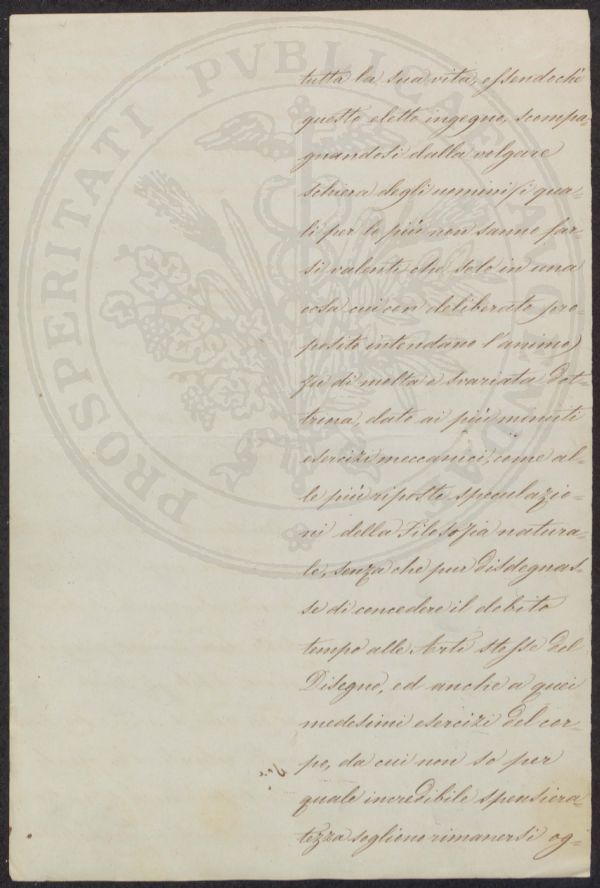 PROSPERITATI PVBLICAE AVGENDAE
tutta la sua vita, essendochè
questo eletto ingegno, scompa-
gnandosi dalla volgare
schiera degli uomini (i qua-
li per lo più non sanno far-
si valenti che solo in una
cosa cui con deliberato pro-
posito intendano l'animo)
fu di molta e svariata dot-
trina, dato ai più minuti
esercizi meccanici, come al-
le più riposte speculazio-
ni della Filosofia natura-
le, senza che pur disdegnas-
se di concedere il debito
tempo alle Arti stesse del
Disegno, ed anche a quei
medesimi esercizi del cor-
po, da cui non so per
quale incredibile spensiera-
tezza sogliono rimanersi og-